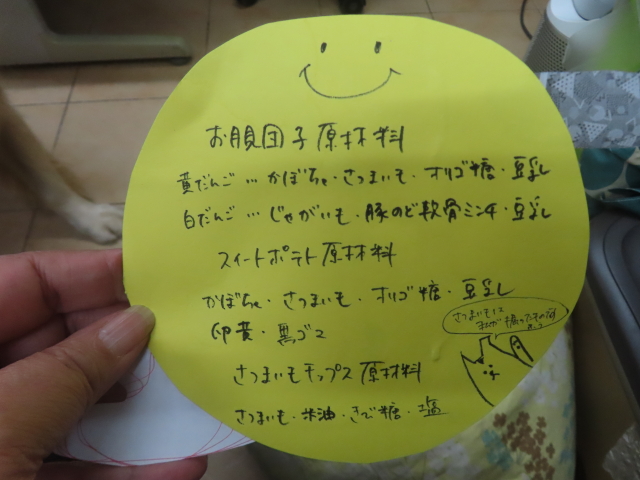 お腹団子原材料
黄だんご…かぼちゃ・さつまいも・オリゴ糖・豆乳
白だんご…じゃがいも・豚のど軟骨ミンチ・豆乳
スイートポテト原材料
かぼちゃ・さつまいも・オリゴ糖・豆乳
卵黄・黒ゴマ
さつまいもチップス原材料
さつまいも・米油・きび糖・塩
さつまいもは
掘ったもの